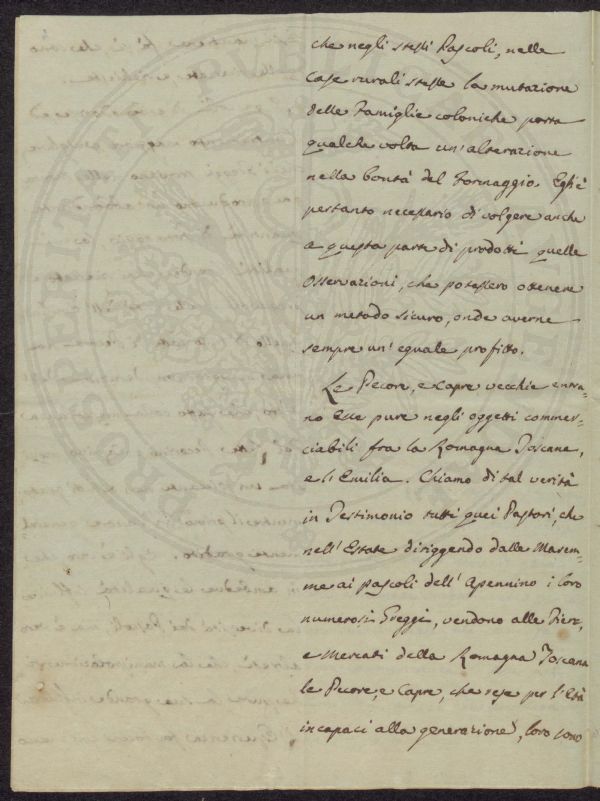 che negli stessi Pascoli, nelle
Case rurali stesse la mutazione
delle Famiglie coloniche porta
qualche volta un'alterazione
nella bontà del Formaggio. Egli è
pertanto necessario di volgere anche
a questa parte di prodotti quelle
Osservazioni, che potessero ottenere
un metodo sicuro, onde averne
sempre un'eguale profitto.
Le Pecore, e Capre vecchie entra-
no Esse pure negli oggetti commer-
ciabili fra la Romagna Toscana,
e l'Emilia. Chiamo di tal verità
in Testimonio tutti quei Pastori, che
nell'Estate diriggendo dalle Marem-
me ai pascoli dell'Apennino i loro
numerosi Greggi, vendono alle Fiere,
e Mercati della Romagna Toscana
le Pecore, e Capre, che rese per l'Età
incapaci alla generazione, loro sono